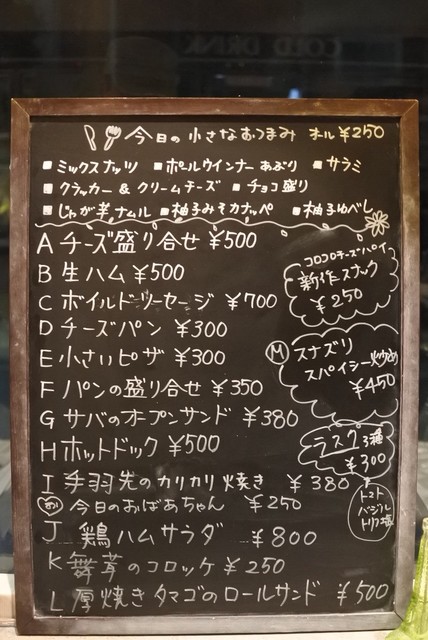 COLD DRINK
今日の小さなおつまみ オール ¥250
■ミックスナッツ ■ポールウインナーあぶり ■サラミ
■クラッカー & クリームチーズ ■チョコ盛り
■じゃが芋ナムル ■柚子みそカナッペ ■柚子ゆべし
A チーズ盛り合せ ¥500
B 生ハム ¥500
C ボイルドソーセージ ¥700
D チーズパン ¥300
E 小さいピザ ¥300
F パンの盛り合せ ¥350
G サバのオープンサンド ¥380
H ホットドック ¥500
I 手羽先のカリカリ焼き ¥380
今日のおばあちゃん ¥250
J 鶏ハムサラダ ¥800
K 舞茸のコロッケ ¥250
L 厚焼きタマゴのロールサンド ¥500
コロコロチーズパイ
新作スナック
¥250
M スナズリ
スパイシー炒め
¥450
ラスク3種
¥300
トマト
バジル